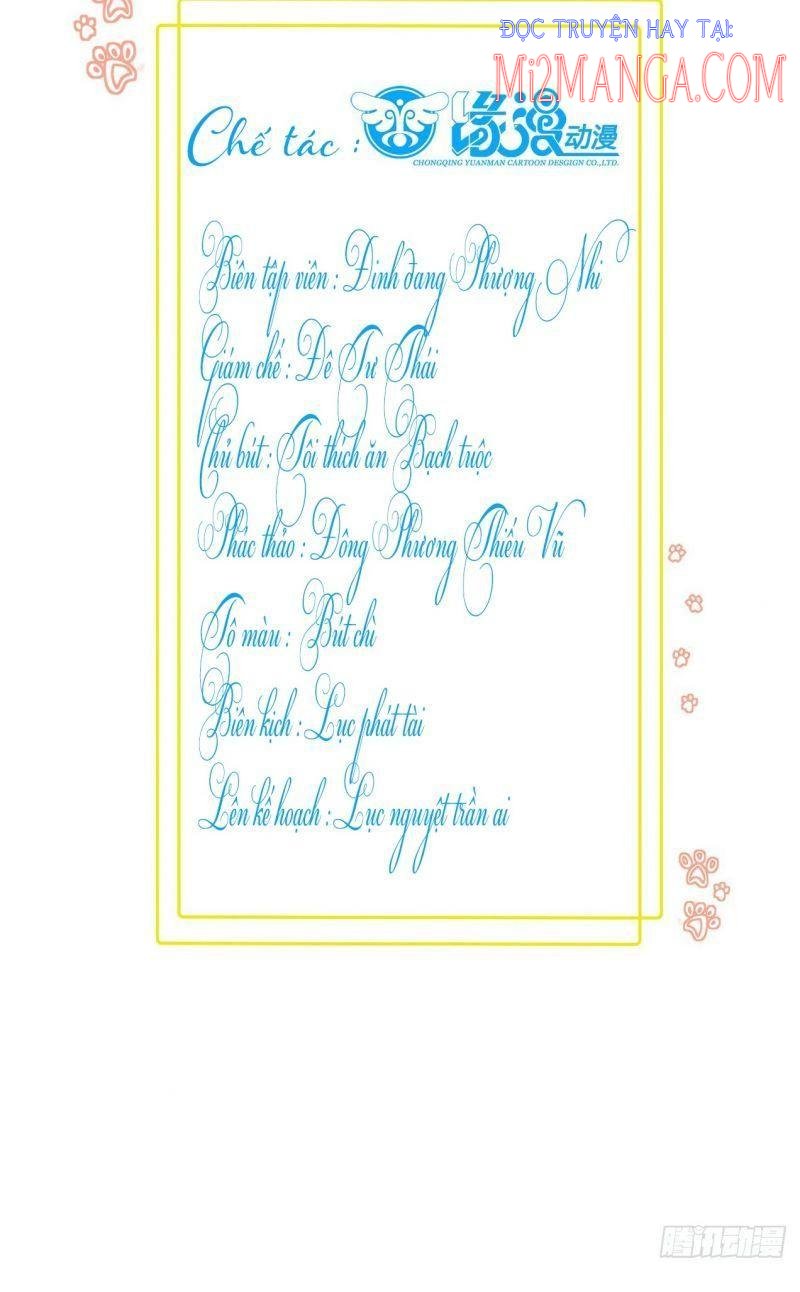 ĐỌC TRUYỆN HAY TẠI:
MI2MANGA.COM
Chế tác : 缘漫动漫
CHONGQING YUANMAN CARTOON DESGIGN CO.,LTD.
Biên tập viên : Đinh đang Phượng Nhi
Giám chế : Đê Tư Thái
Chủ bút : Tôi thích ăn Bạch tuộc
Phác thảo : Đông Phương Thiếu Vũ
Tô màu : Bút chì
Biên kịch : Lục phát tài
Lên kế hoạch : Lục nguyệt trần ai
腾讯动漫